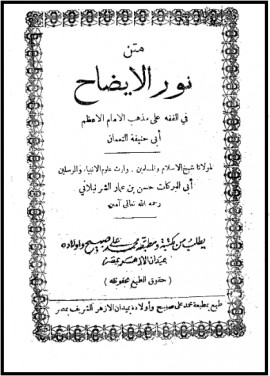 متن
نور الإيضاح
في الفقه على مذهب الامام الاعظم
أبى حنيفة النعمان
لمولانا شيخ الاسلام والمسلمين . وارث علوم الانبياء والمرسلين
أبى البركات حسن بن عمار الشرنبلالى
رحمه الله تعالى آمين
يطلب من مكتبة ومطبعة محمد على صبيح وأولاده
بميدان الأزهر بمصر
( حقوق الطبع محفوظة )
طبع بمطبعة محمد على صبيح وأولاده بميدان الازهر الشريف بمصر